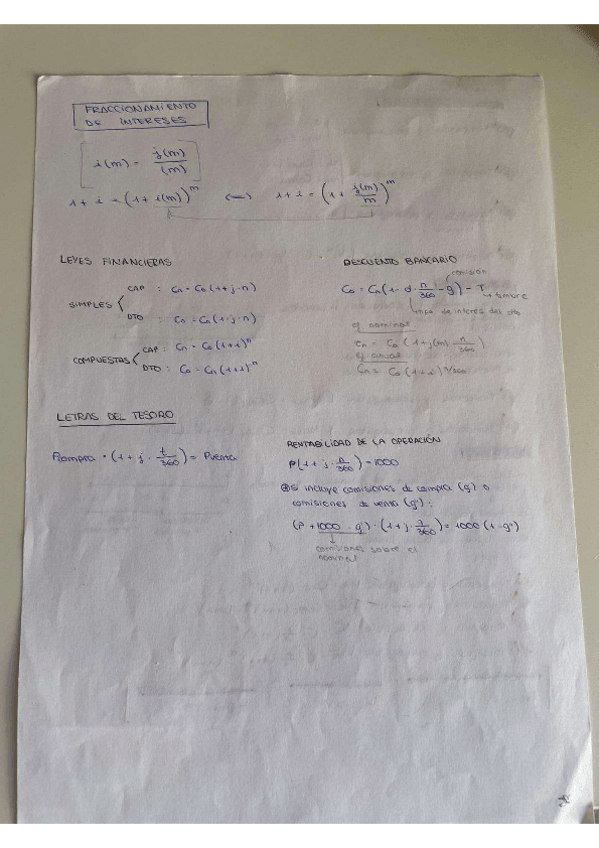 FRACCIONAMIENTO
DE INTERESES
i(m) = j(m)/(m)
1 + i = (1 + i(m))^m <=> 1 + i = (1 + j(m)/m)^m
LEYES FINANCIERAS
SIMPLES
CAP : Cn = Co (1 + j · n)
DTO : Co = Cn (1 - j · n)
COMPUESTAS
CAP : Cn = Co (1 + i)^n
DTO : Co = Cn (1 + i)^-n
DESCUENTO BANCARIO
comisión
Co = Cn (1 - d · n/360 - g) - T
timbre
tipo de interés del dto
ej nominal
Cn = Co (1 + j(m) n/360)
ej anual
Cn = Co (1 + i)^n/360
LETRAS DEL TESORO
Pcompra · (1 + j · t/360) = Pventa
RENTABILIDAD DE LA OPERACIÓN
P(1 + j · n/360) = 1000
Si incluye comisiones de compra (g) o
comisiones de venta (g') :
(P + 1000 · g) · (1 + j · n/360) = 1000 (1 - g')
comisiones sobre el
nominal